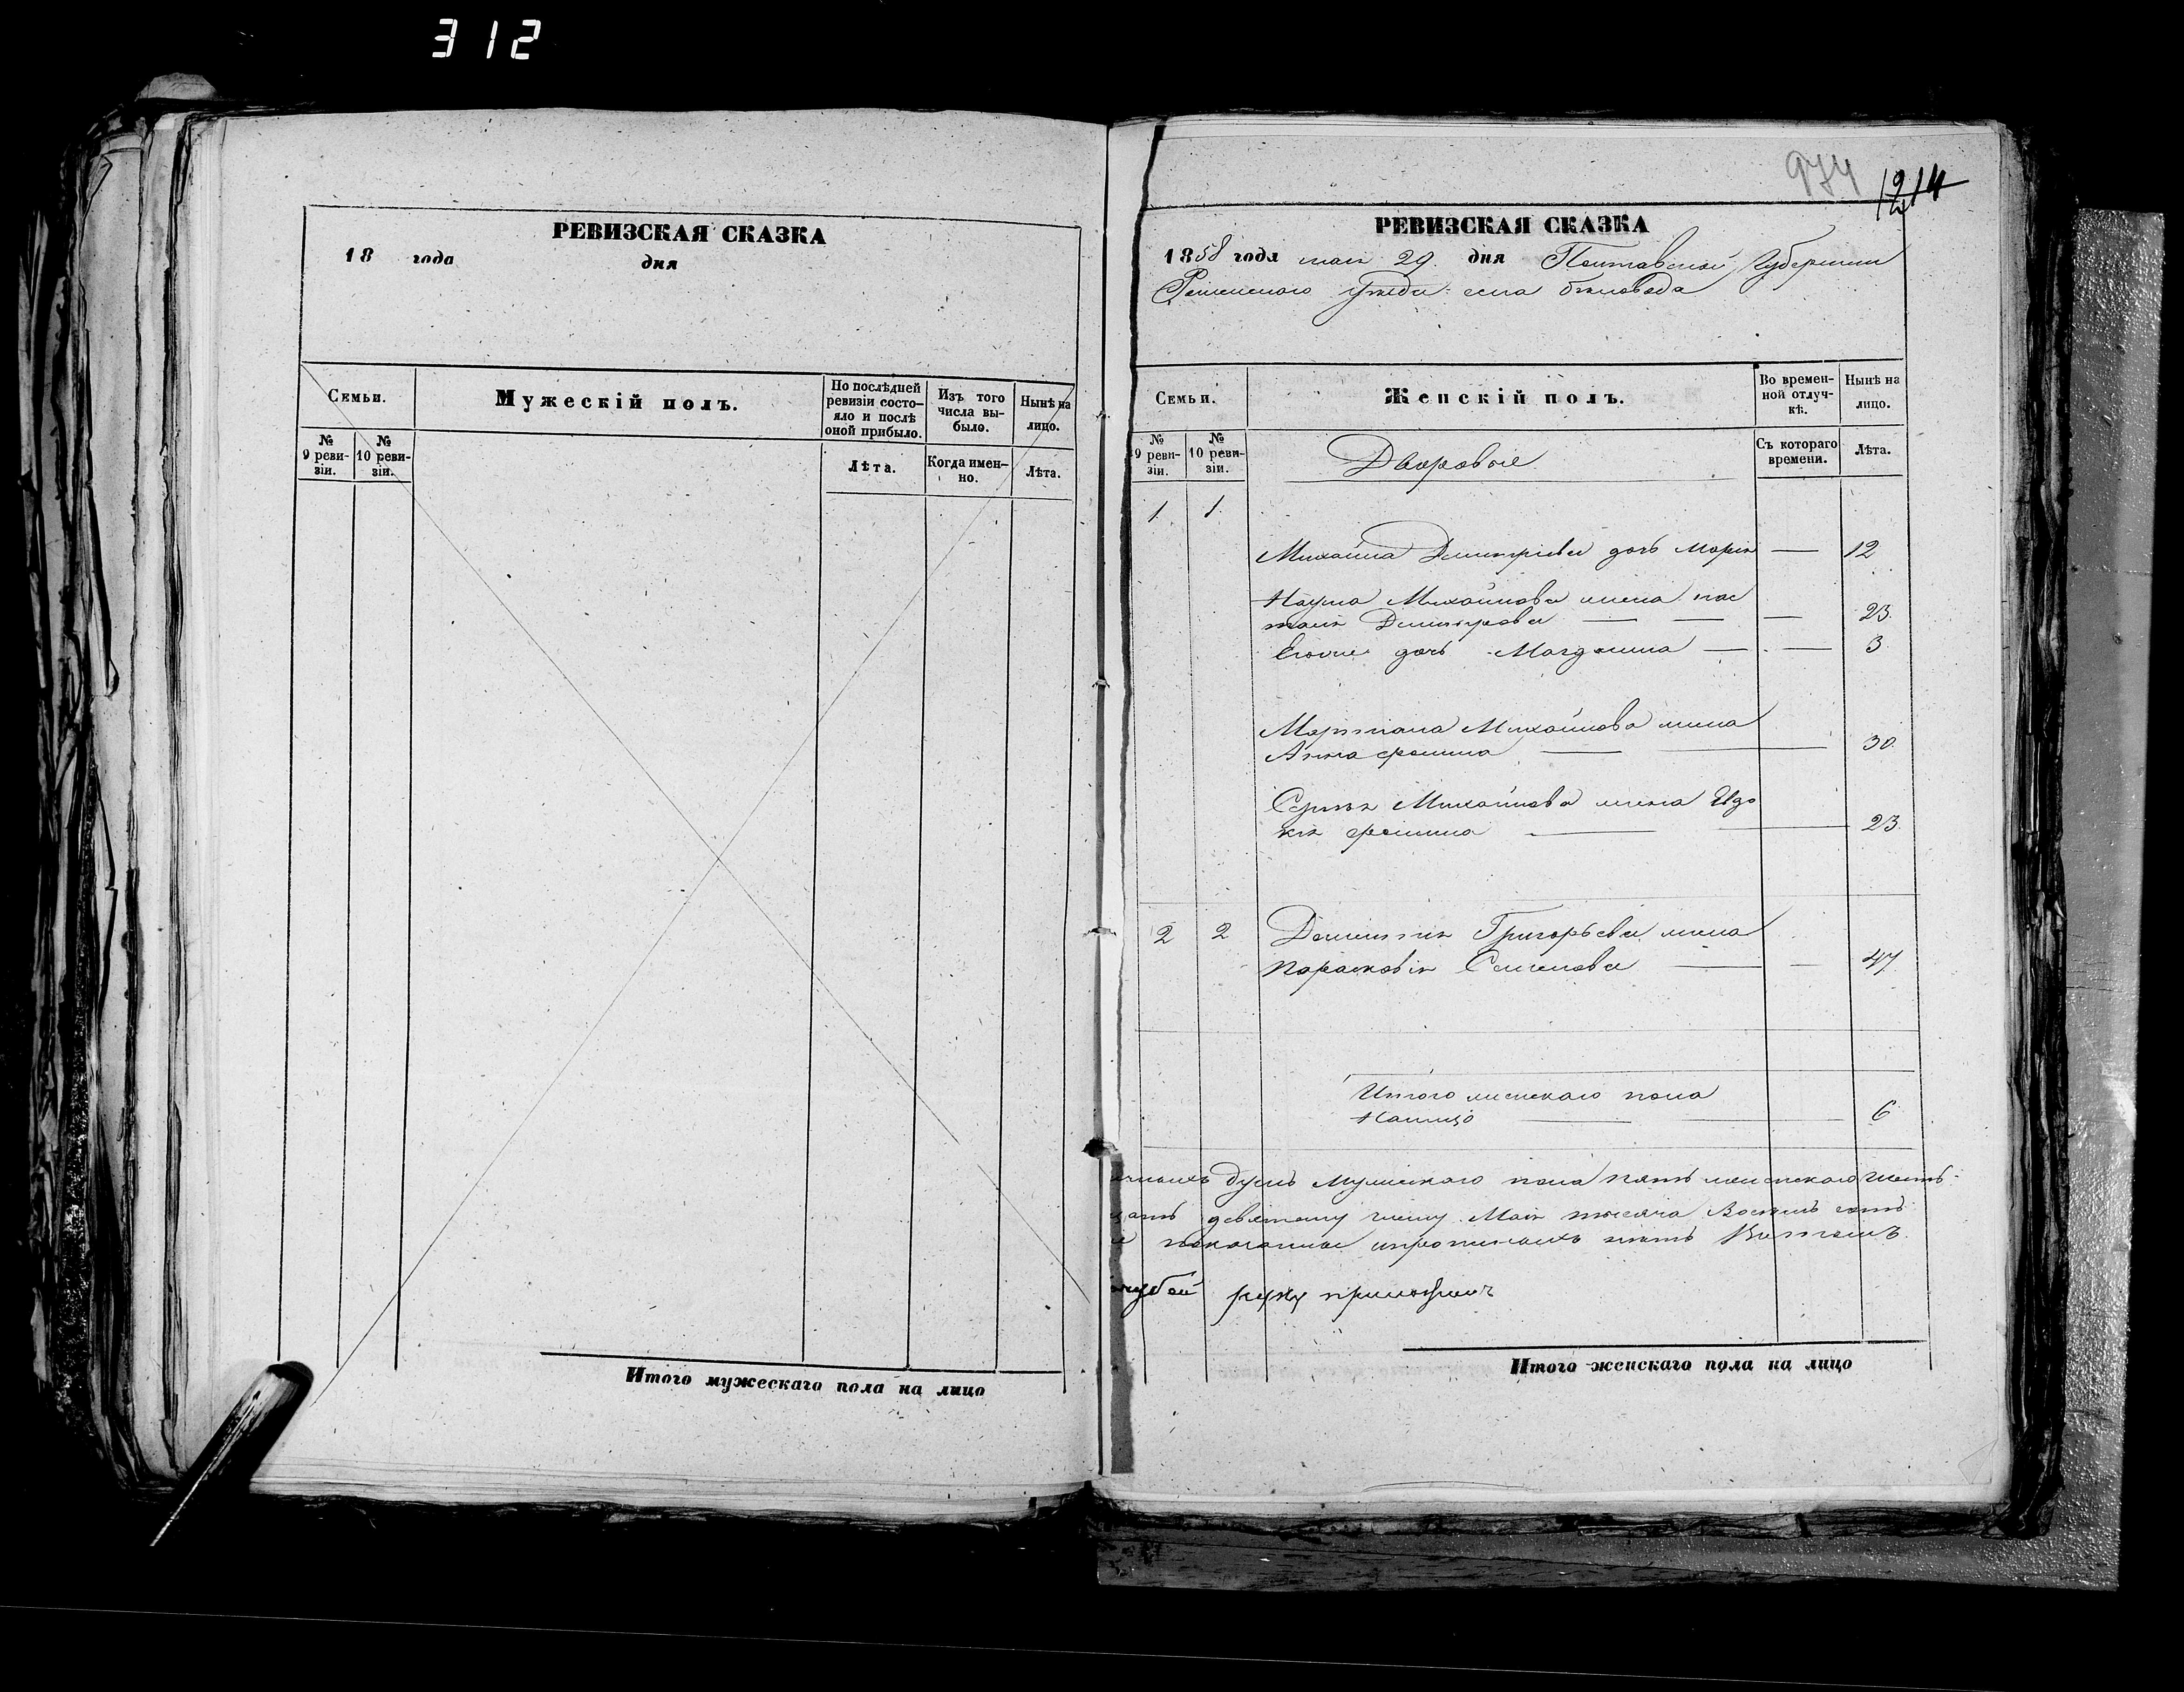 312
РЕВИЗСКАЯ СКАЗКА
18 года дня
Семьи.
Мужескій полъ.
По послѣдней ревизіи состо-
яло и послѣ
оной прибыло.
Изъ того
числа вы-
было.
Нынѣ на
лицо.
№
9 реви-
зіи.
№
10 реви-
зіи.
Лѣта.
Когда имен-
но.
Лѣта.
Итого мужескаго пола на лицо
974
1214
РЕВИЗСКАЯ СКАЗКА
1858 года мая 29 дня Полтавской Губерніи
Роменского уѣзда села бѣловода
Семьи.
Женскій полъ.
Во времен-
ной отлуч-
кѣ.
Нынѣ на
лицо.
№
9 реви-
зіи.
№
10 реви-
зіи.
Дворовые
Съ котораго
времени.
Лѣта.
1 1
Михайла Дмитріева дочь Марія — 12
Наума Михайлова жена нас
тасія Дмитрова — — — 23
Егоже дочь Магдалина — — 3
Мартiана Михайлова жена
Анна фомина — — 30
Сергѣя Михайлова жена Евдо
кія фомина — — 23
2 2 Дементія Григорьева жена
Парасковія Семенова — — 47
Итого женскаго пола
Налицо — — 6
душъ мужескаго пола пять женскаго шесть
девятому числу Мая тысяча Восемъ сотъ
показанные
чубей руку приложилъ
Итого женскаго пола на лицо